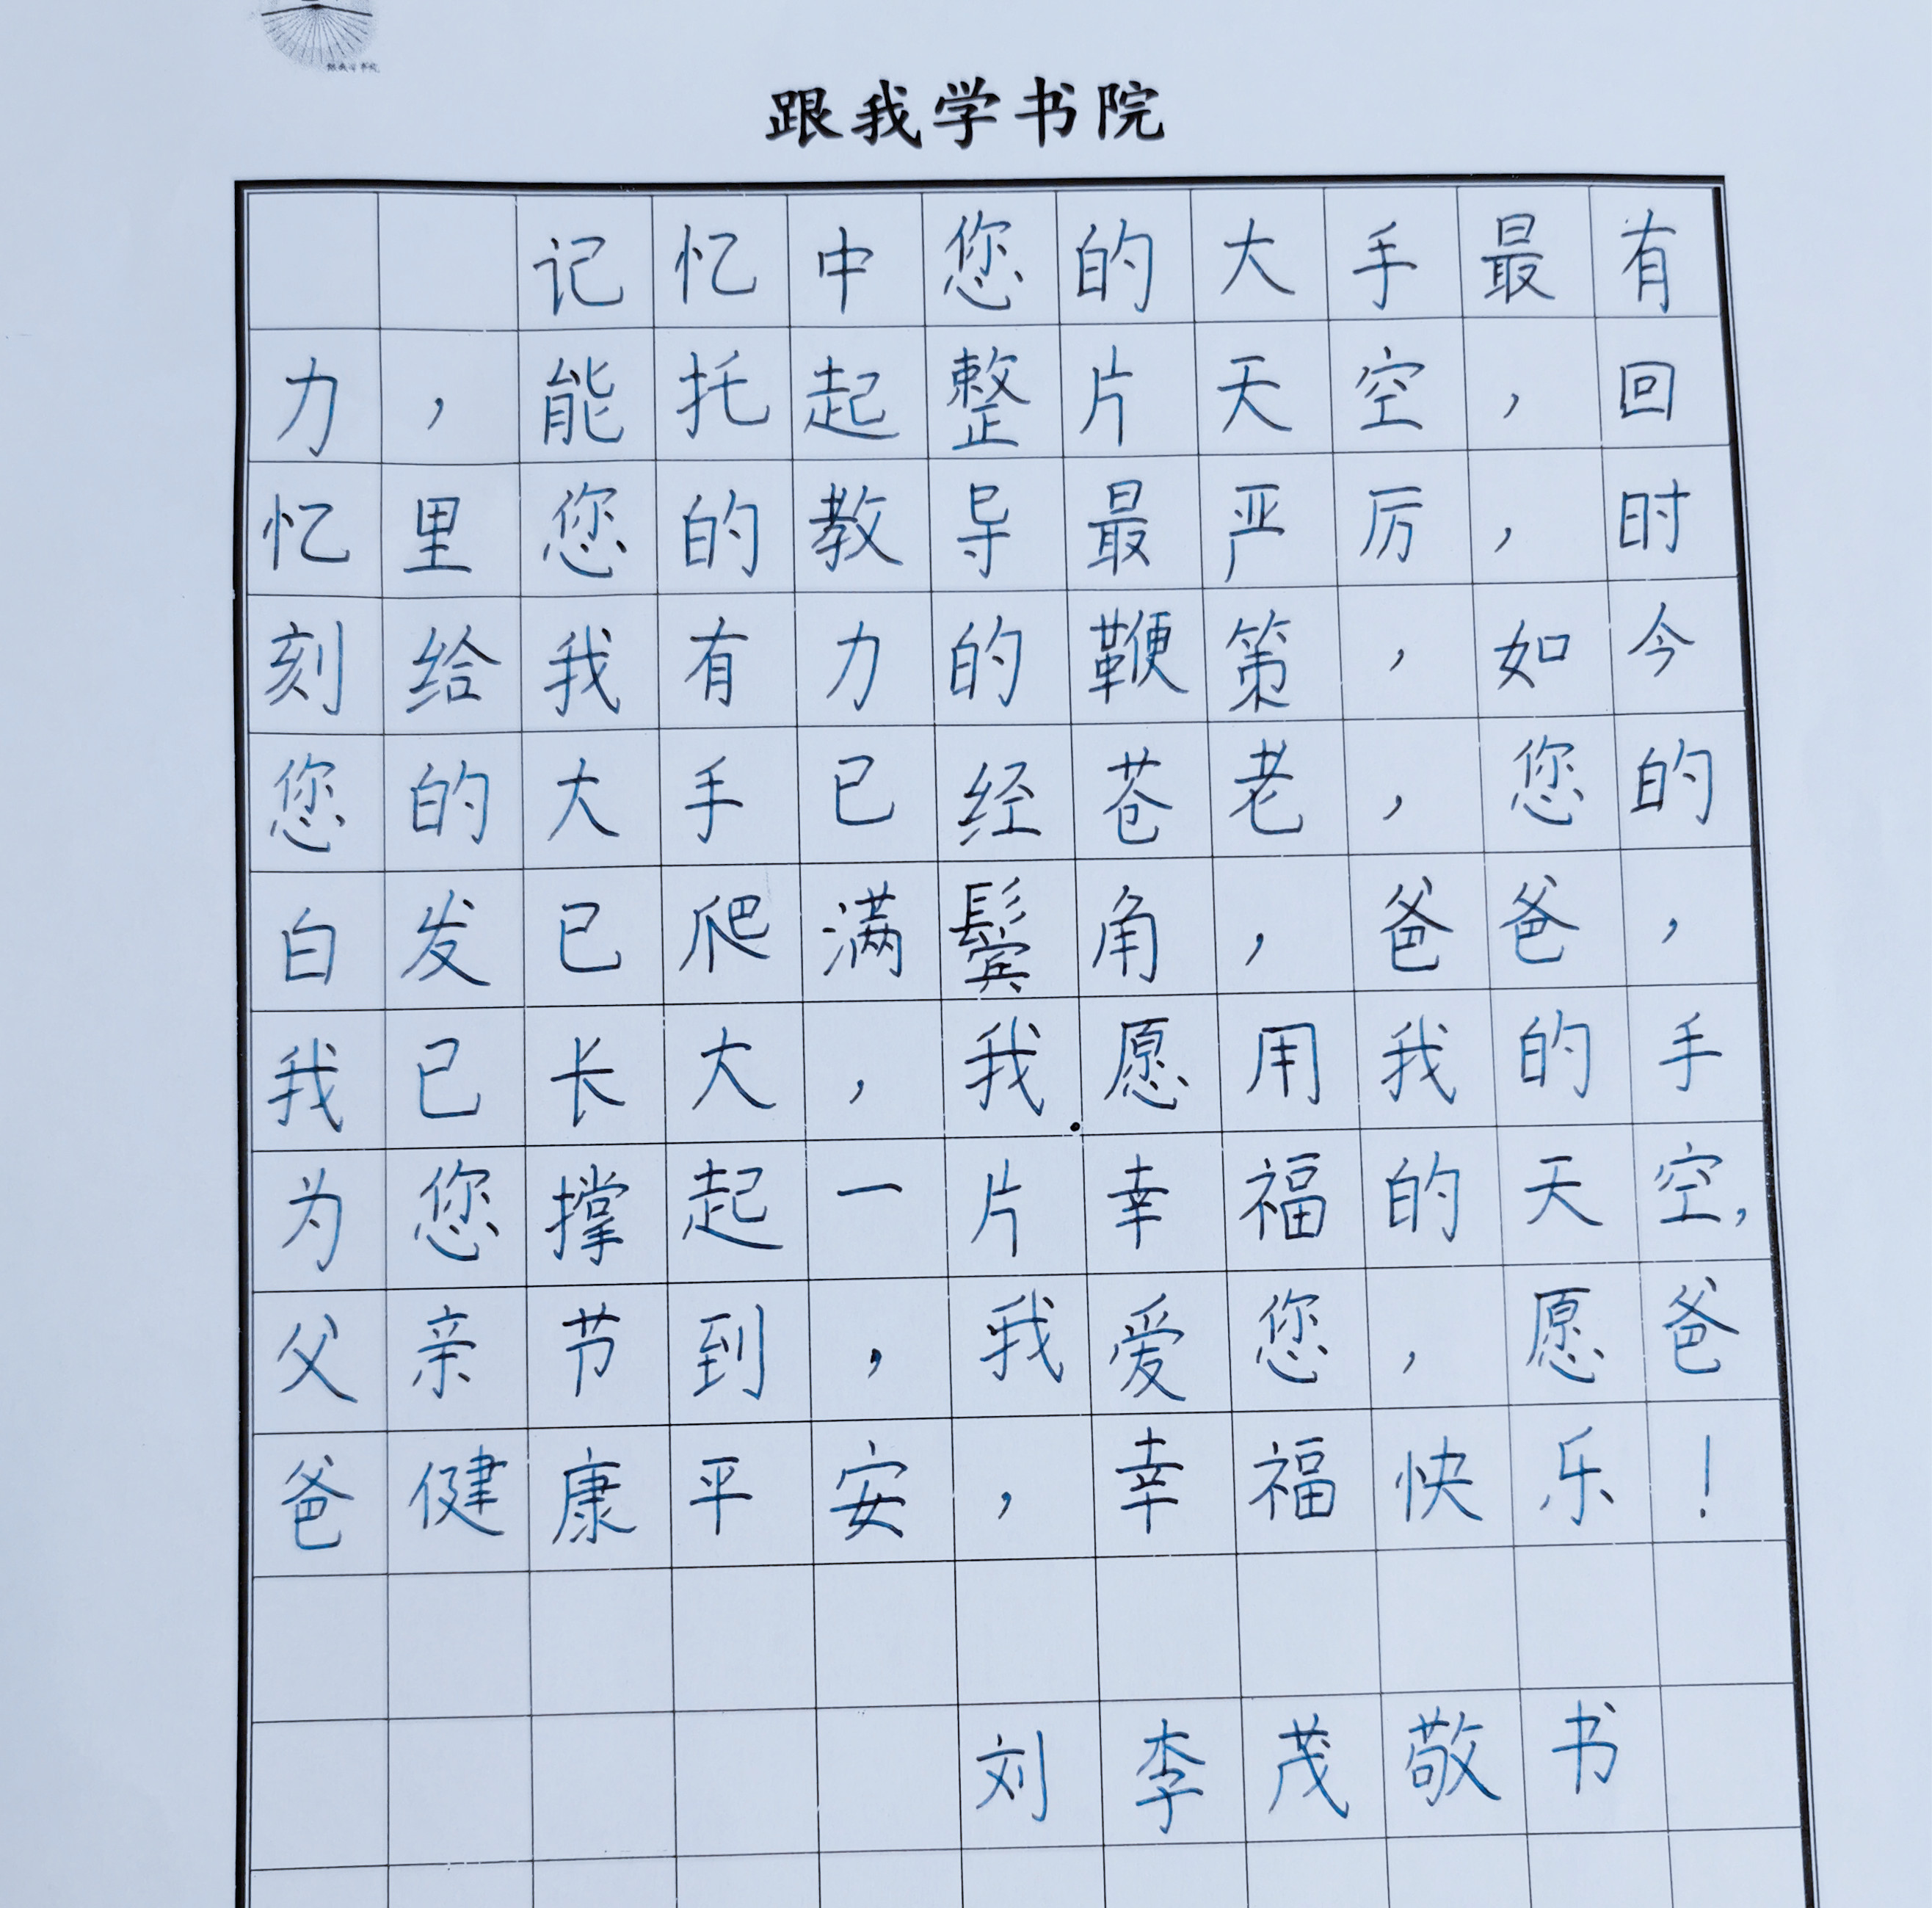 跟我学书院
跟我学书院
记忆中您的大手最有
力，能托起整片天空，回
忆里您的教导最严厉，时
刻给我有力的鞭策，如今
您的大手已经苍老，您的
白发已爬满鬓角，爸爸，
我已长大，我愿用我的手
为您撑起一片幸福的天空，
父亲节到，我爱您，愿爸
爸健康平安，幸福快乐！
刘李茂敬书